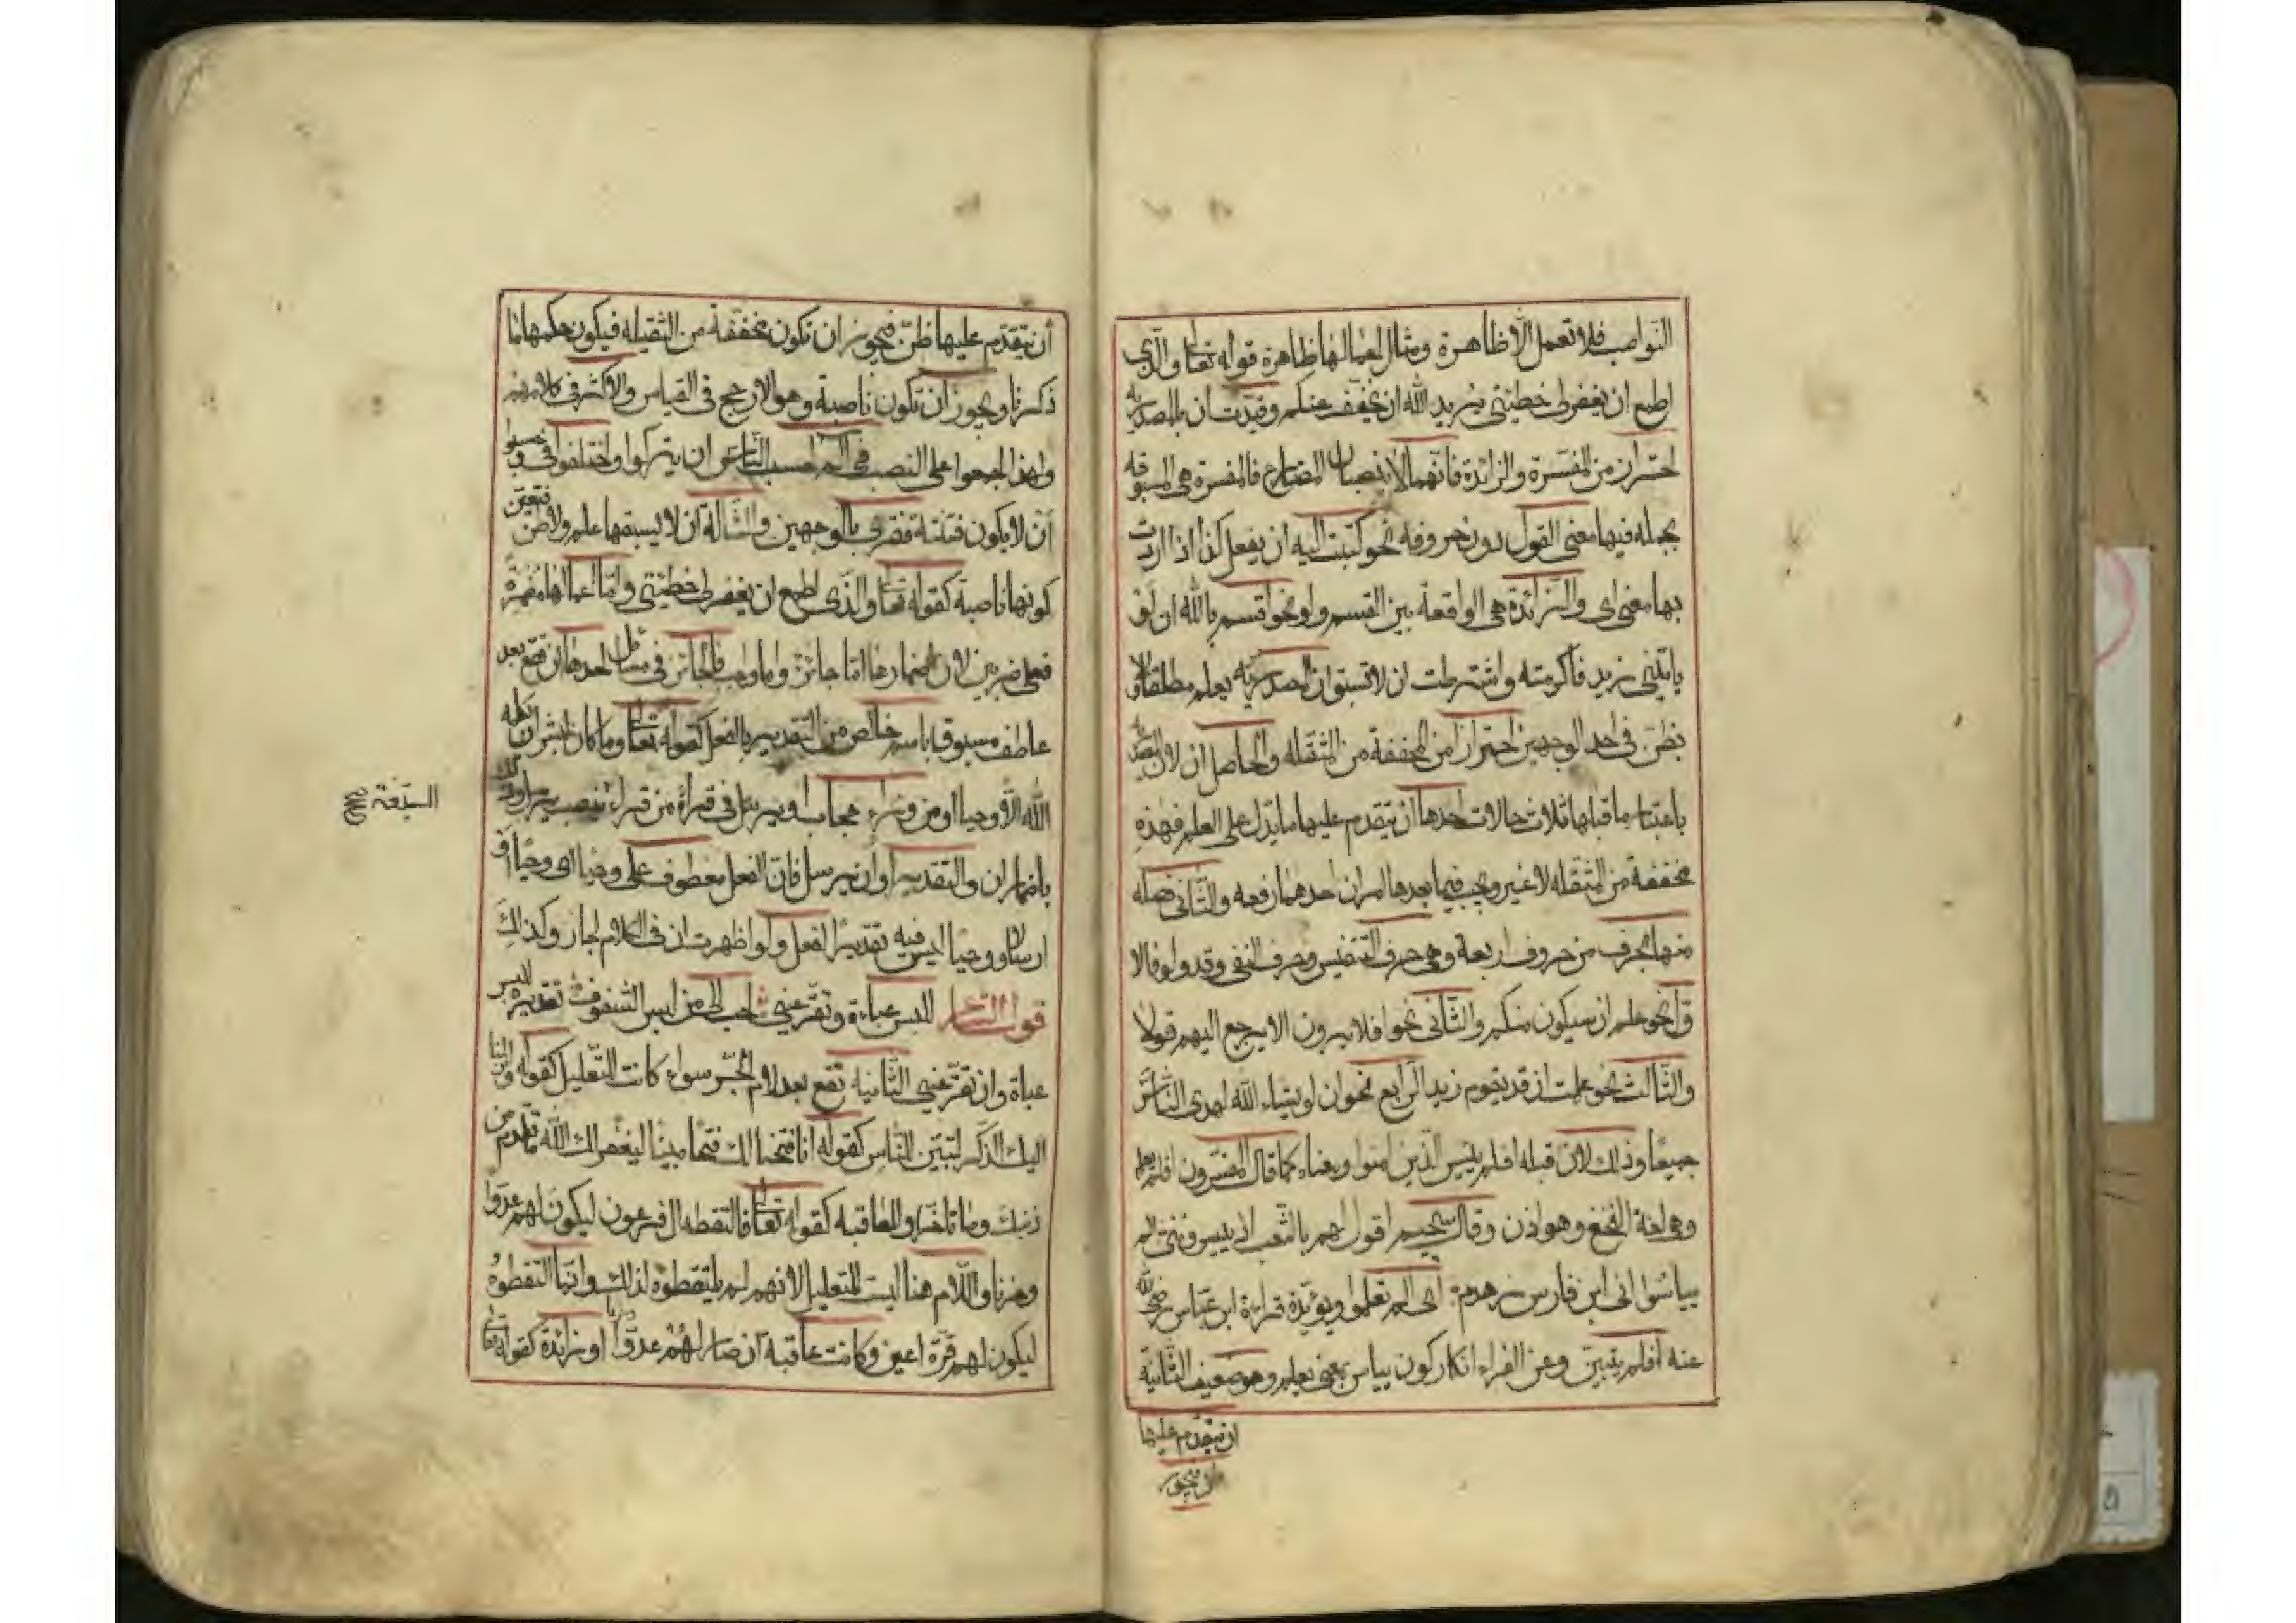 النواصب فلا تعمل الا ظاهرة ومثال اعمالها ظاهرة قوله تعا والذى
اطمع ان يغفر لى خطيئتى يريد الله ان يخفف عنكم وقيدت ان بالمصدريه
احترازا من المفسرة والزائدة فانهما لا ينصبان المضارع فالمفسرة هى المسبوقه
بجمله فيها معنى القول دون حروفه نحو كتبت اليه ان يفعل كذا اذا اردت
بها معنى اى والزائدة هى الواقعة بين القسم ولو نحو اقسم بالله ان لو
ياتينى زيد فاكرمته واشترطت ان لا تسبق ان المصدريه بعلم مطلقا ولا
بظن فى احد الوجهين احترازا من المخففة من الثقله والحاصل ان لان المصدريه
باعتبار ما قبلها ثلاث حالات احدها ان يتقدم عليها ما يدل على العلم فهذه
مخففة من الثقله لا غير ويجب فيما بعدها امران احدهما رفعه والثانى فصله
منها بحرف من حروف اربعة وهى حرف التنفيس وحرف النفى وقد ولو فالا
ول نحو علم ان سيكون منكم والثانى نحو افلا يرون الا يرجع اليهم قولا
والثالث نحو علمت ان قد يقوم زيد الرابع نحو ان لو يشاء الله لهدى الناس
جميعا وذلك لان قبله افلم ييئس الذين امنوا ومعناه كما قال المفسرون افلم يعلم
وهى لغة النخع وهوازن وقال سحيم اقول لهم بالشعب اذ ييسروننى الم
يياسوا انى ابن فارس زهدم اى الم تعلموا ويؤيدة قراءة ابن عباس رضى الله
عنه افلم يتبين وعن الفراء انكار كون ييأس بمعنى يعلم وهو ضعيف الثانية
ان يتقدم عليها
أن يتقدم عليها ظن فيجوز ان تكون مخففة من الثقيله فيكون حكمها ما
ذكرنا ويجوز ان تكون ناصبة وهو الارجح فى القياس والاكثر فى كلامهم
ولهذا اجمعوا على النصب فى الم احسب الناس ان يتركوا واختلفوا فى وحسبوا
أن لا يكون فتنة فقرى بالوجهين والثالثة ان لا يسبقها علم ولا ظن فتعين
كونها ناصبة كقوله تعا والذى اطمع ان يغفر لى خطيئتى واما اعمالها مضمرة
فعلى ضربين لان اضمارها اما جائز واما واجب فالجائز فى مسائل احدها ان تقع بعد
عاطف مسبوق باسم خالص من التقدير بالفعل كقوله تعا وما كان لبشر ان يكلمه
الله الا وحيا او من وراء حجاب او يرسل فى قراءة من قراء بنصب يرسل وذلك
السبعة صح
باضمار ان والتقدير او ان يرسل فان الفعل معطوف على وحيا اى وحيا او
ارسالا ووحيا ليس فيه تقدير الفعل ولو اظهرت ان فى الكلام لجاز وكذلك
قول الشاعر للبس عباءة وتقر عينى احب الى من لبس الشفوف تقديره للبس
عباة وان تقر عينى الثانيه تقع بعد لام الجر سواء كانت للتعليل كقوله وانزلنا
اليك الذكر لتبين للناس كقوله انا فتحنا لك فتحا مبينا ليغفر لك الله ما تقدم من
ذنبك وما تاخر او للعاقبه كقوله تعا فالتقطه ال فرعون ليكون لهم عدوا
وحزنا واللام هنا ليست للتعليل لانهم لم يلتقطوه لذلك وانما التقطوه
ليكون لهم قرة اعين وكانت عاقبه ان صار لهم عدوا وحزنا او زائدة كقوله تعا